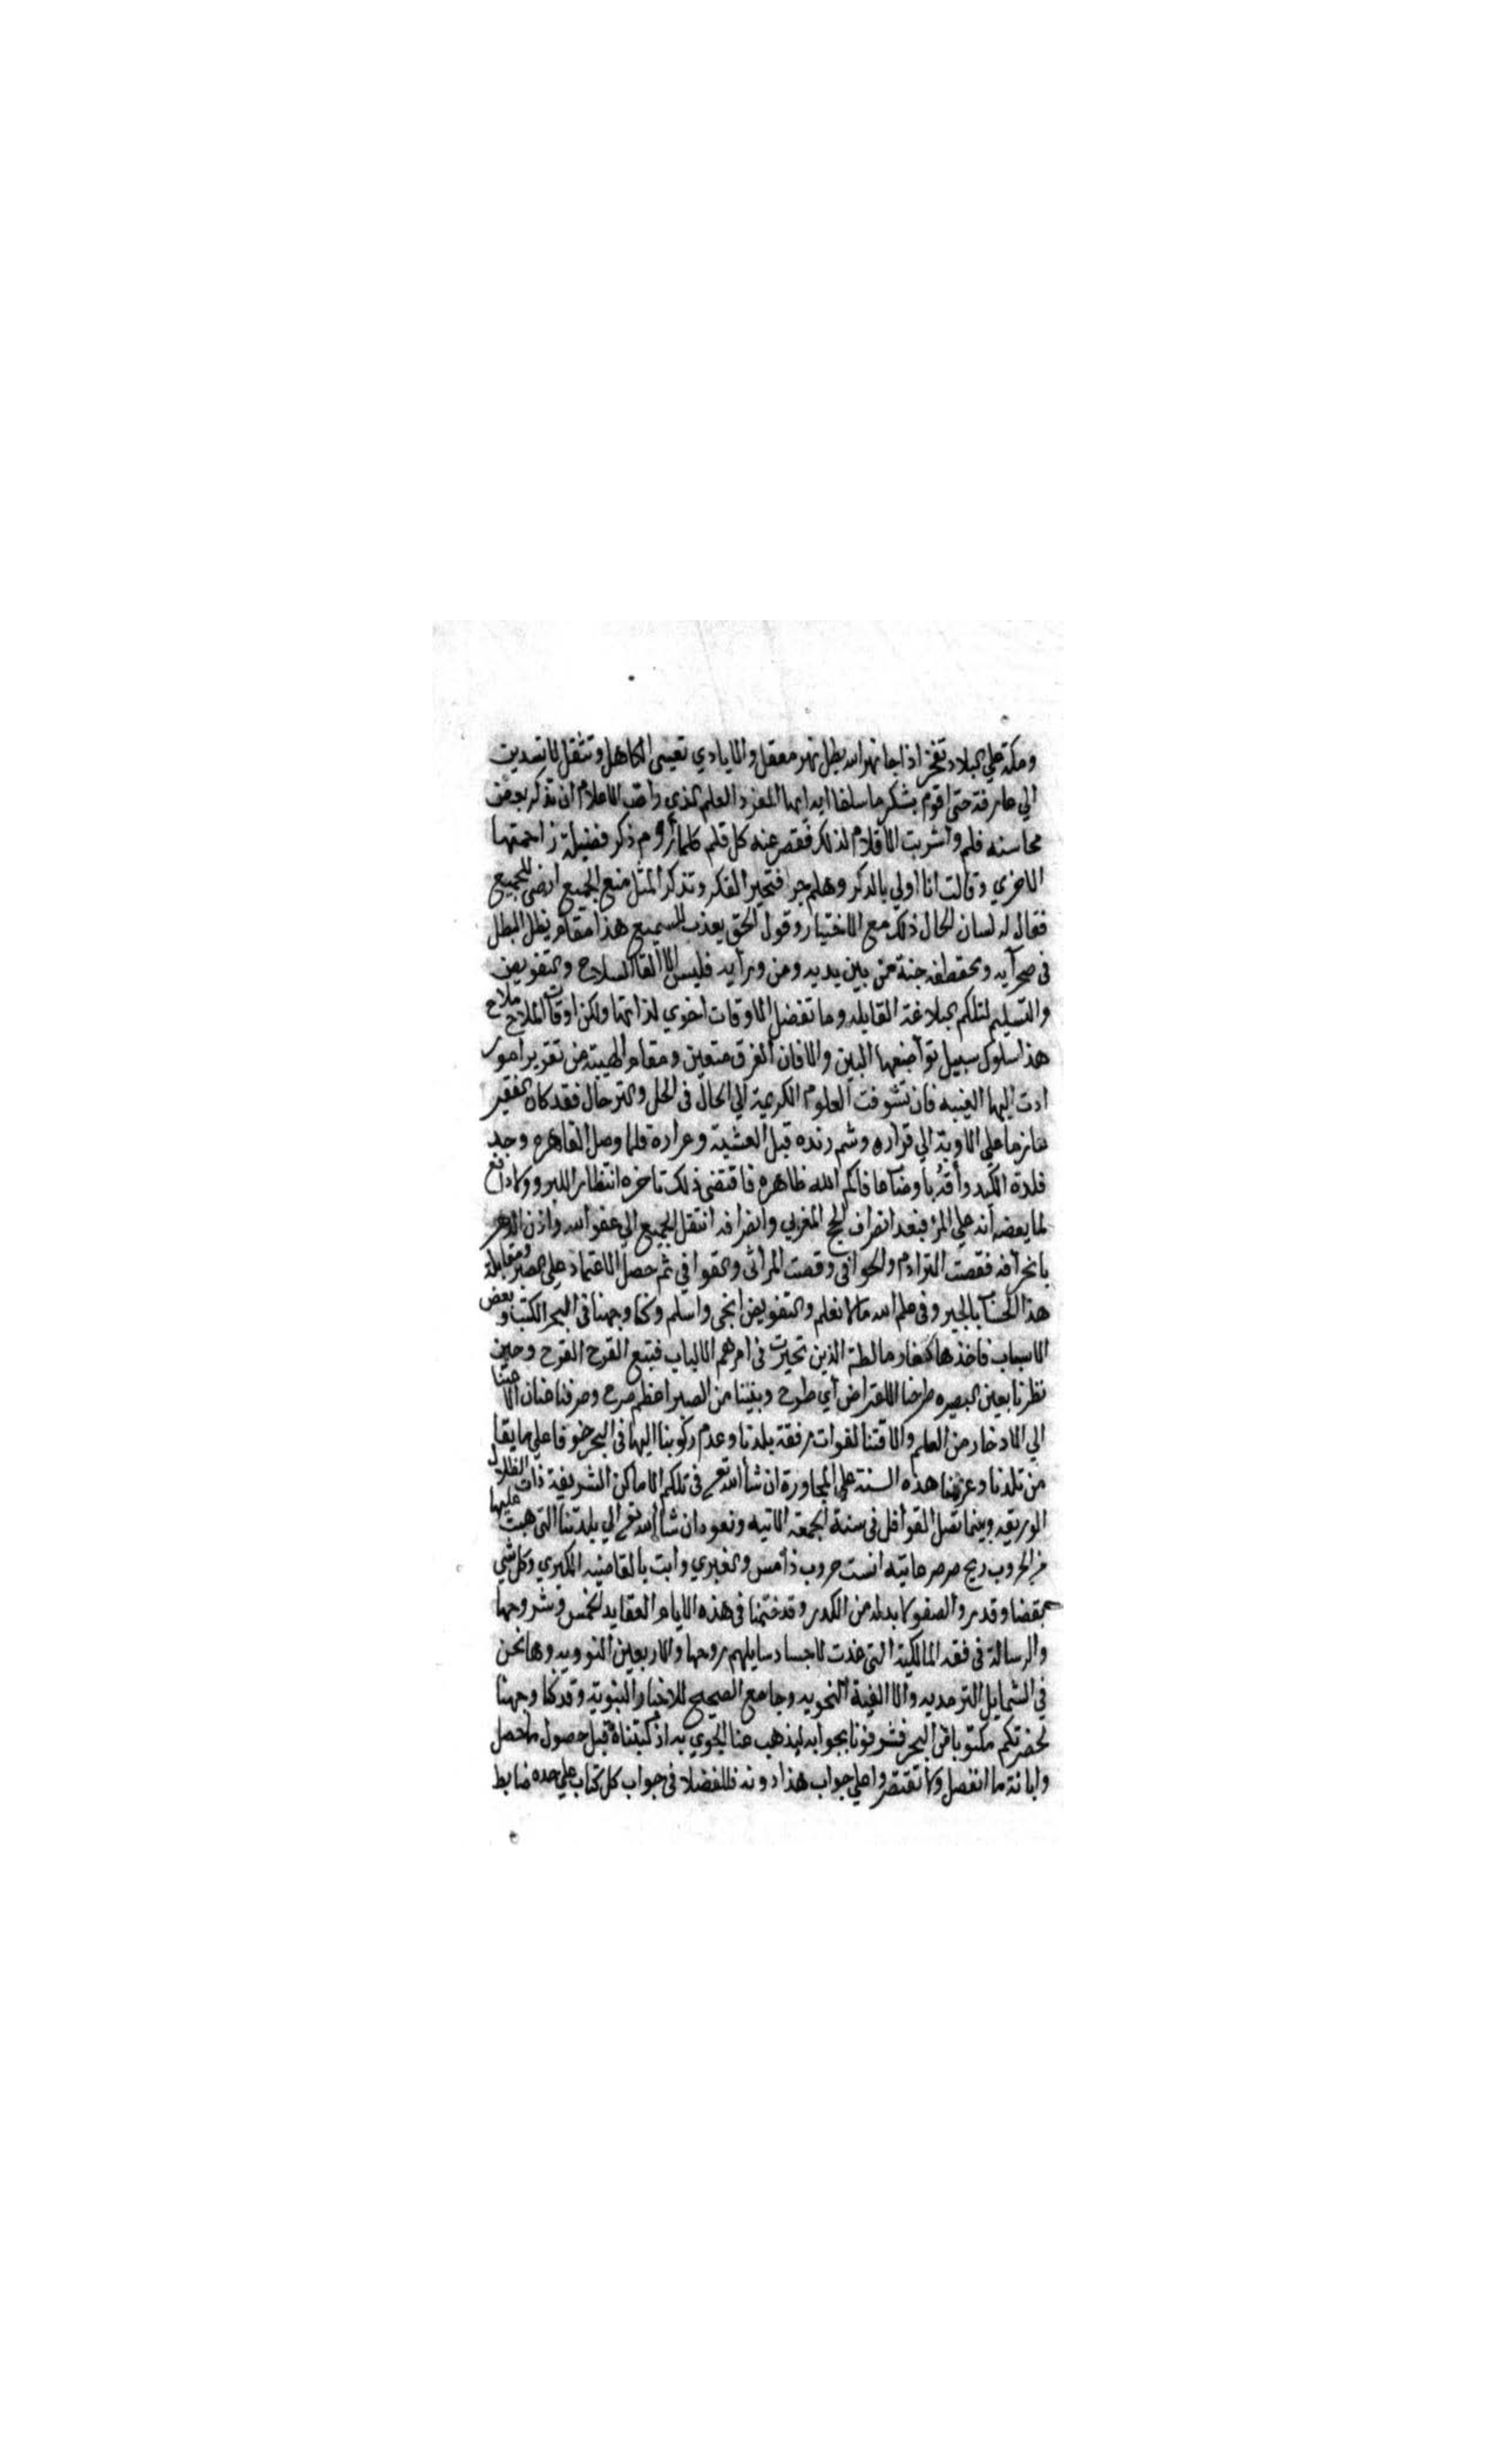 ومكة علي البلاد تفخر اذا جا نهر الله بطل نهر معقل والايادي تعيي الكاهل وتثقل لا تسدين
الي عارفة حتي اقوم بشكر ما سلفا ايدايها المفرد العلم الذي الاعلام ان تذكر بعض
محاسنه فلم واشربت الاقلام لذلك فقصر عنه كل قلم كلما أروم ذكر فضيلة زاحمتها
الاخري وقالت انا اولي بالذكر وهلم جرا فتحير الفكر وتذكر المثل منع الجميع ارضي للجميع
فقال له لسان الحال ذلك مع الاختيار وقول الحق يعذب للسميع هذا مقام يظل البطل
في صحرآيه جنة من بين يديه ومن ورآيه فليس الا القا السلاح والتفويض
والتسليم لتلكم البلاغة القايله وما تفضل الاوقات اخري لذاتها ولكن اوقات الملاح ملاح
هذا سلوك سبيل تواضعها البين والا فان الفرق متعين ومقام الهيبة من تقرير امور
ادت اليها الغيبه فان تشوفت العلوم الكريمة الي الحال في الحل والترحال فقد كان الفقير
عازما علي الاوبة الي قراره وشم رنده قبل العشية وعراره فلما وصل القاهره وجد
فلذة الكبد واقربا ظاهره فاقتضي ذلك تاخره انتظار اللبرو ولا دافع
لما يعضه انه علي المرء فبعد انصراف الحج المغربي وانصرافه انتقل الجميع الي عفو الله واذن الدهر
بانحرآفه فقصت القوادم والخوافي وقصت المرآثي والقوافي ثم حصل الاعتماد علي الصبر ومقابلة
هذا الحساب بالجبر وفي علم الله ما لا نعلم والتفويض انجي واسلم وكنا وجهنا في البحر الكتب وبعض
الاسباب فاخذها كفار مالطة الذين تحيرت في امرهم الالباب فتبع القرح القرح وحين
نظرنا بعين البصيره طرحنا الاعتراض اي طرح وبنينا من الصبر اعظم صرح وصرفنا عنان الاعتنا
الي الادخار من العلم والاقتنا لفوات رفقة بلدنا وعدم ركوبنا اليها في البحر خوفا علي ما بقا
من تلدنا وعزمنا هذه السنة علي المجاورة ان شا الله تعالى في تلكم الاماكن الشريفة ذات الظلال
الوريقه وبينما تصل القوافل في سنة الجمعة الاتيه ونعود ان شا الله تعالى الي بلدتنا التي هبت عليها
من الحروب ريح صرصر عاتيه انست حروب ذا مس والغبري واتت بالقاضيه الكبري وكل شي
بقضا وقدر والصفو لا بد له من الكدر وقد ختمنا في هذه الايام العقايد الخمس وشروحها
والرسالة في فقه المالكية التي غدت لاجساد سايلهم روحها والاربعين النوويه وها نحن
في الشمايل الترمديه والالفية النحويه وجامع الصحيح للاخبار النبوية وقد كنا وجهنا
لحضرتكم مكتوبا في البحر فشرفونا بجوابه ليذهب عنا الجوي به اذ كتبناه قبل حصول ما حصل
وابانة ما انفصل ولا تقتصروا علي جواب هذا دونه فللفضلا في جواب كل كتاب علي حده ضابط